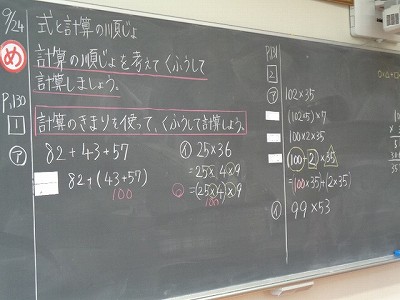 9/24
式と計算の順じょ
め
計算の順じょを考えてくふうして
計算しましょう。
P.130
1
計算のきまりを使って、くふうして計算しよう。
ア
82+43+57
82+(43+57)
100
イ 25×36
=25×4×9
=(25×4)×9
100
P.131
2
ア
102×35
(102×5)×7
100×2×35
(100+2)×35
=(100×35)+(2×35)
イ
99×53